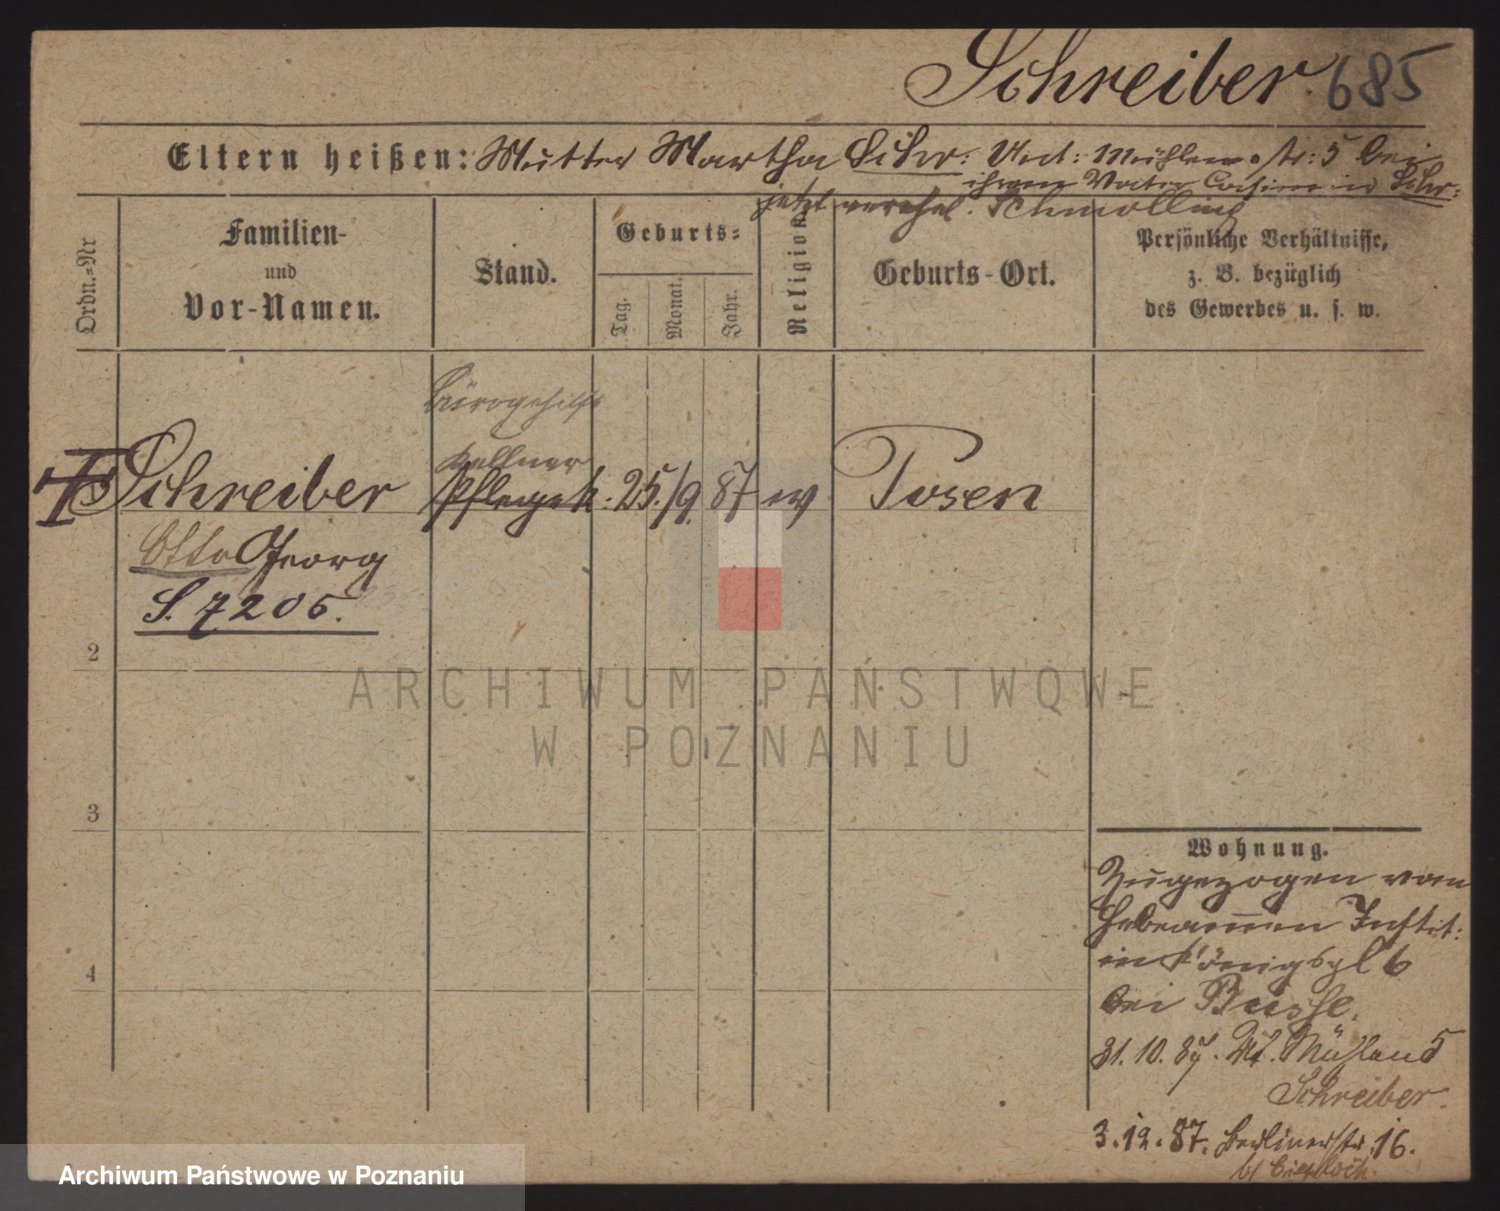 Schreiber. 685
Eltern heißen: Mutter Martha Schr: Unt: Mühlenstr: 5 bei
ihrem Vater Casimir Schr:
jetzt verehel. Schmolling
Ordn.=Nr
Familien-
und
Vor-Namen.
Stand.
Geburts=
Tag.
Monat.
Jahr.
Religion
Geburts-Ort.
Persönliche Verhältnisse,
z. B. bezüglich
des Gewerbes u. s. w.
Bürogehilfe
Kellner
Schreiber Pflegek: 25./9. 87 ev Posen
Otto Georg
S. 7205.
2
ARCHIWUM PAŃSTWOWE
W POZNANIU
3
Wohnung.
Zugezogen vom
Hebeammen Instit:
in Königspl 6
bei Busse.
4
31. 10. 87. Ut. Mühlen 5
Schreiber.
3. 12. 87. Berlinerstr. 16.
b/
Archiwum Państwowe w Poznaniu